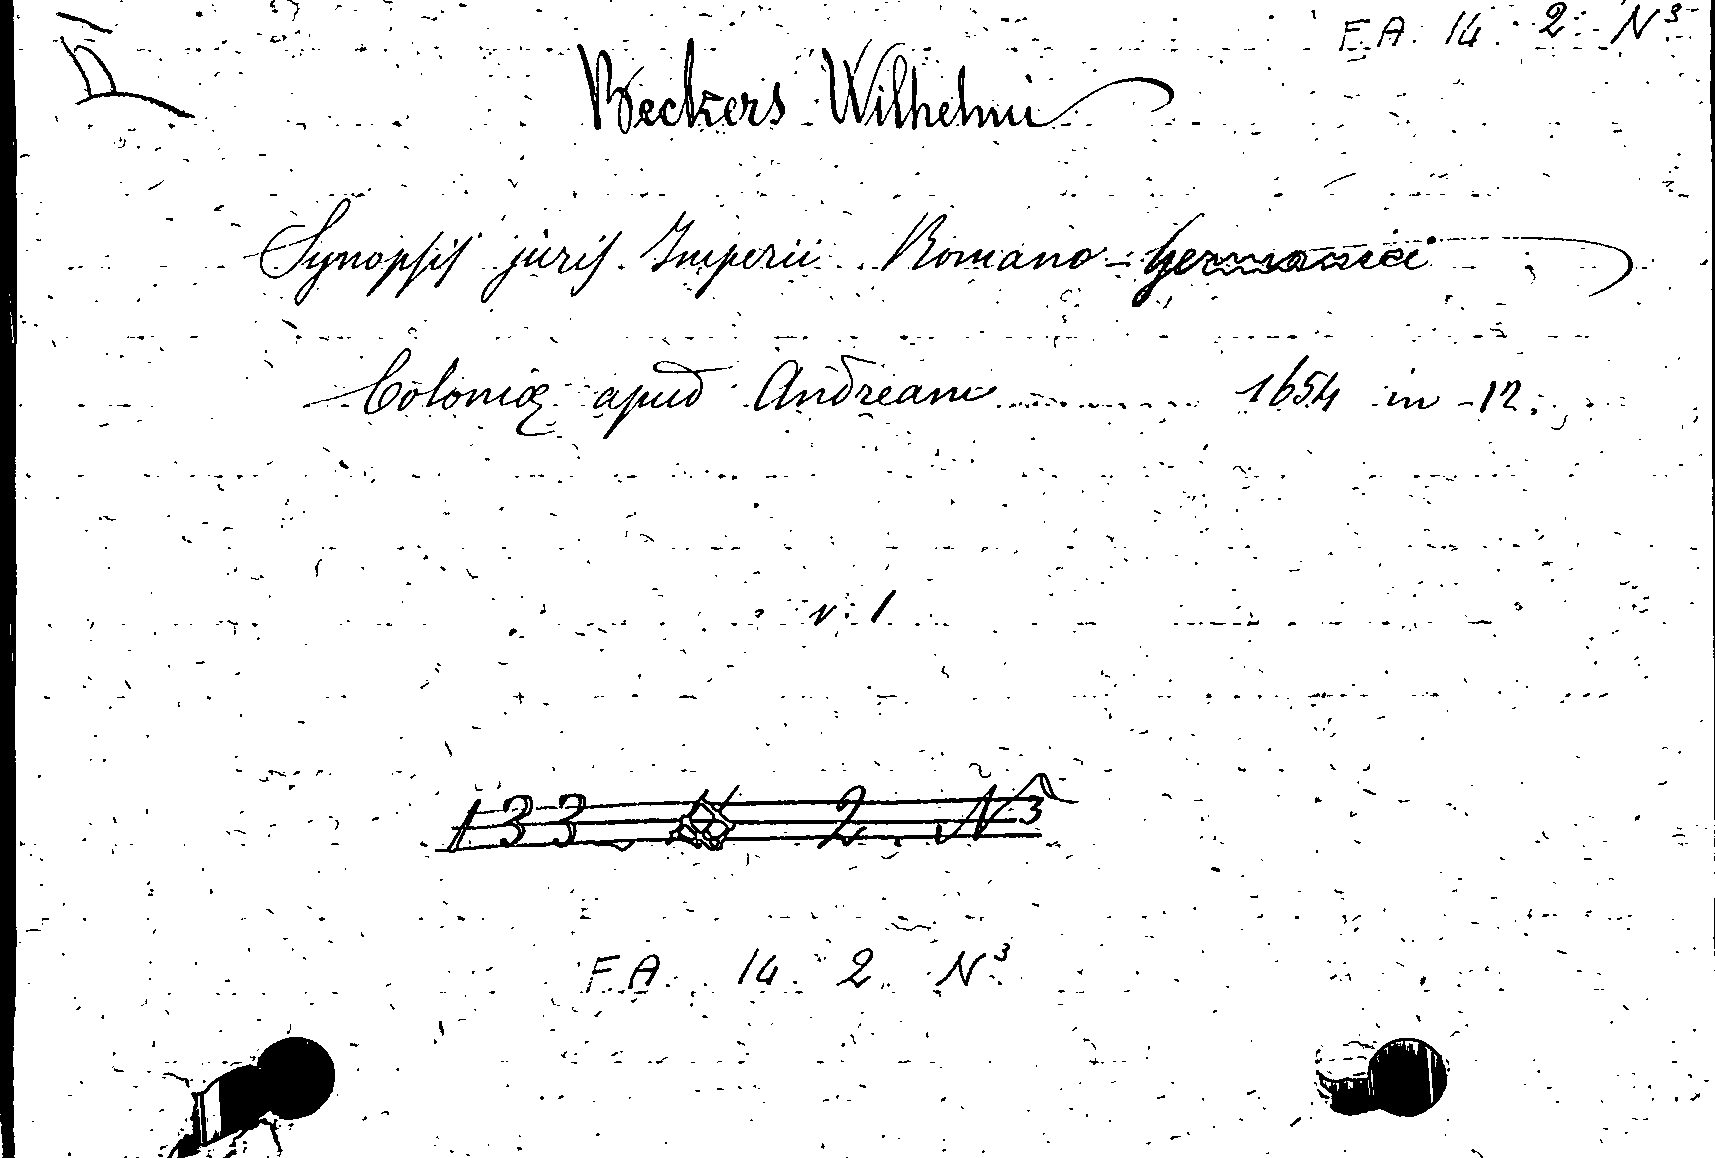 F.A. 14. 2. N³
Beckers Wilhelmi
Synopsis juris Imperii Romano-Germanici
Coloniæ apud Andream 1654 in-12.
v. 1
133 2. N³
F.A. 14. 2. N³